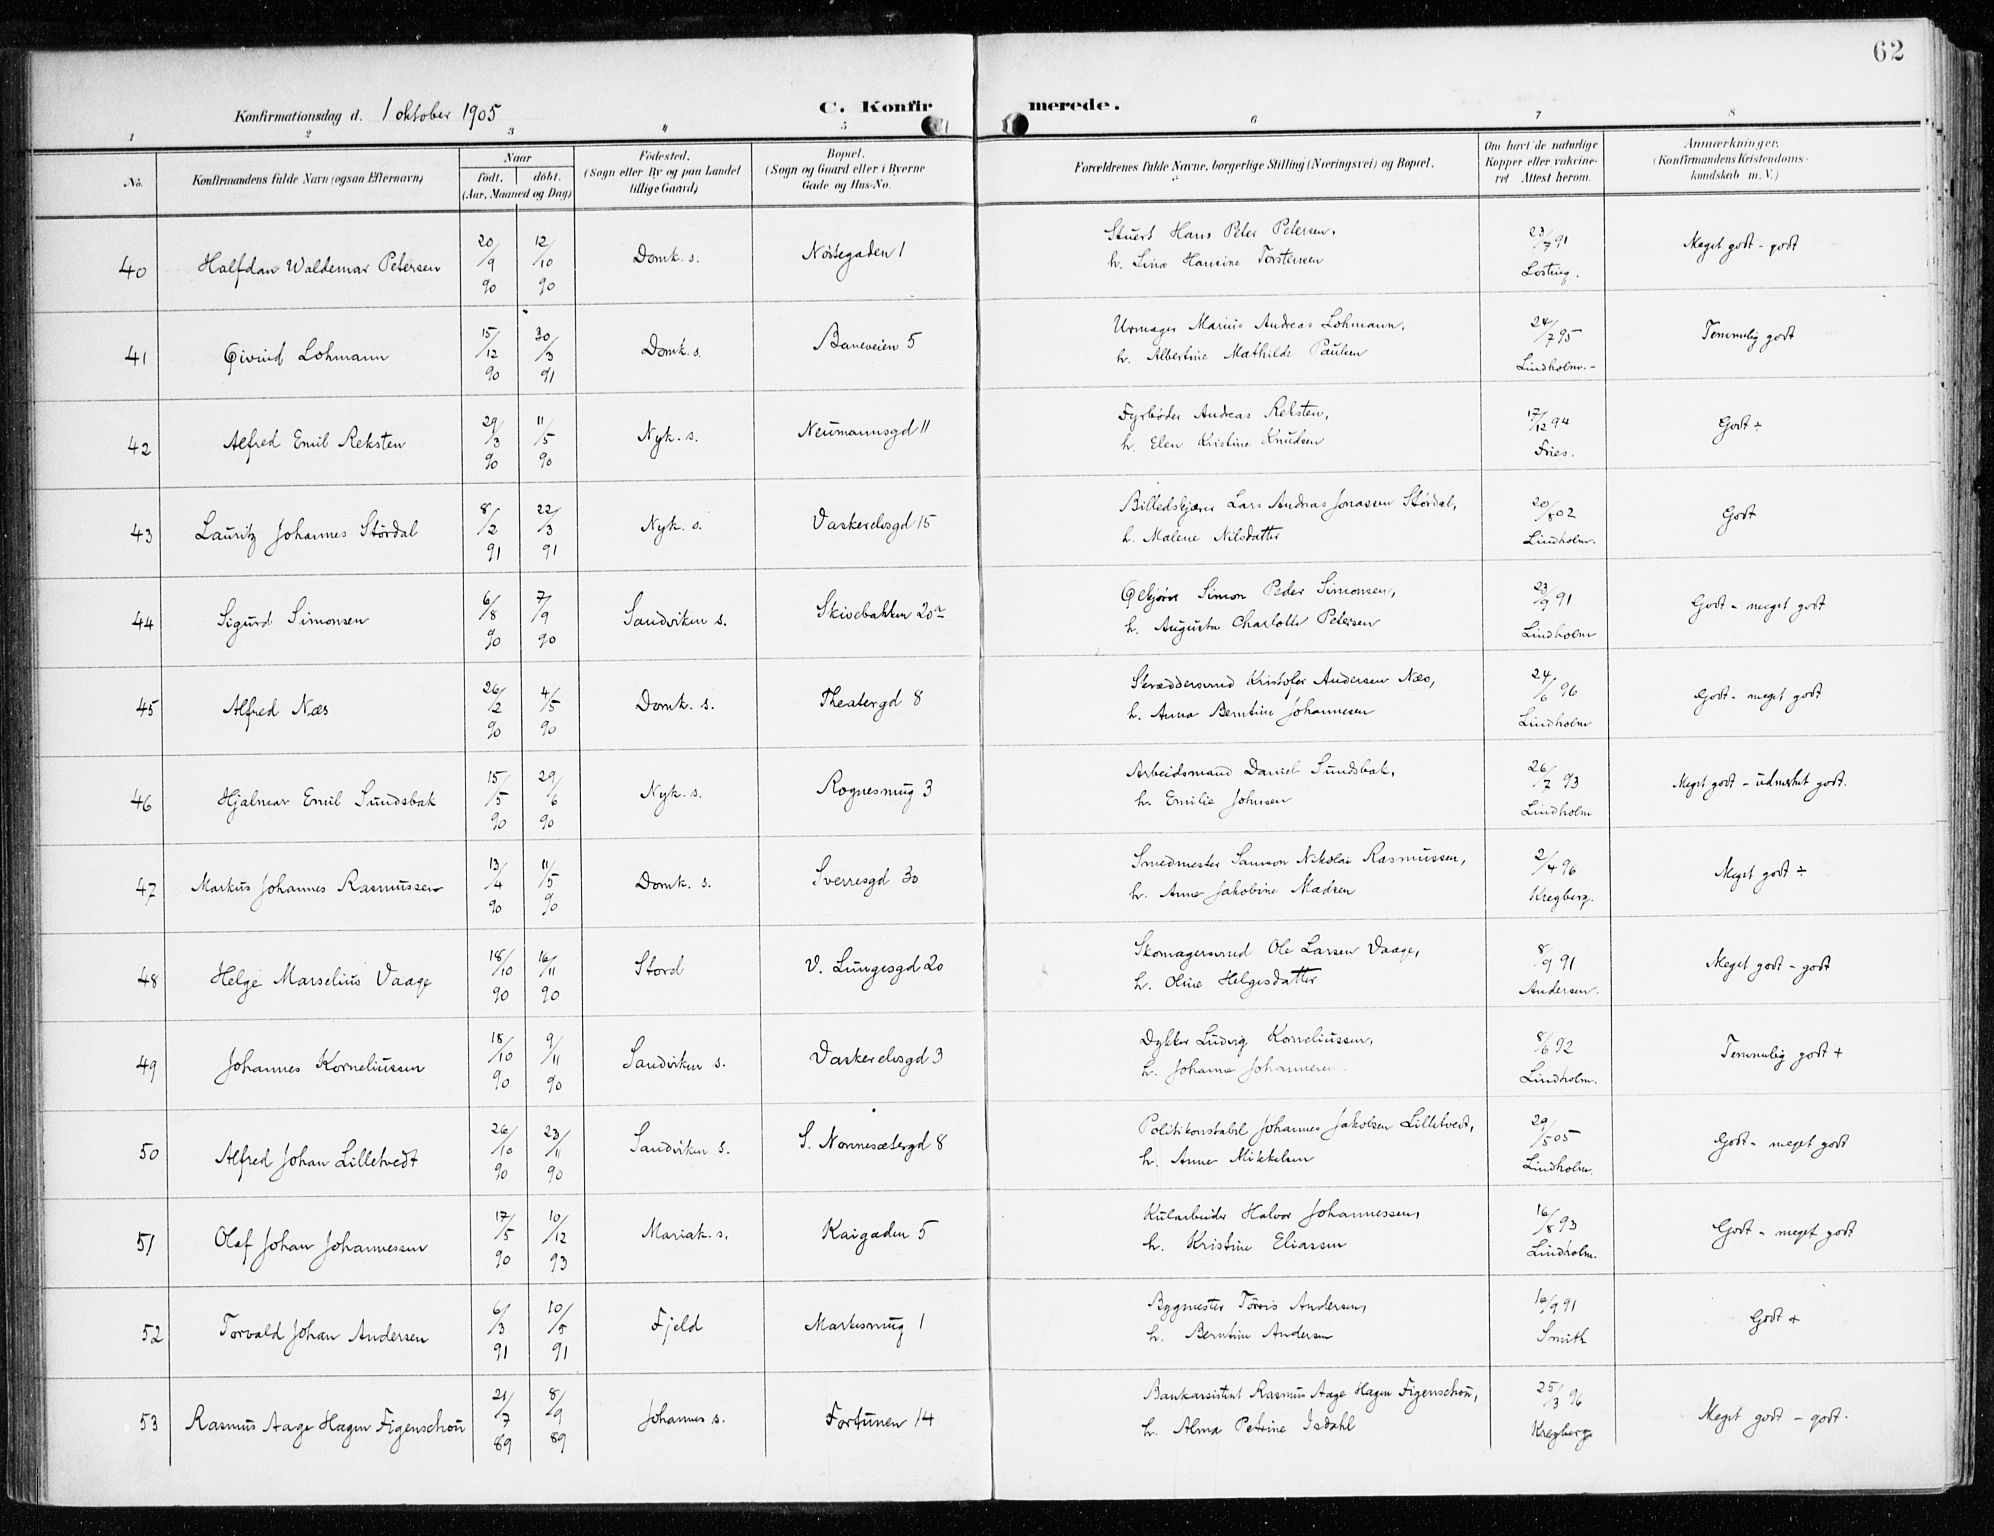 62
Konfirmationsdag d. 1 oktober 1905
C. Konfirmerede.
1 2 3 4 5 6 7 8
No.
Konfirmandens fulde Navn (ogsaa Efternavn)
Naar
født. døbt.
(Aar, Maaned og Dag)
Fødested.
(Sogn eller By og paa Landet
tillige Gaard)
Bopæl.
(Sogn og Gaard eller i Byerne
Gade og Hus-No.
Forældrenes fulde Navne, borgerlige Stilling (Næringsvei) og Bopæl.
Om havt de naturlige
Kopper eller vakcine-
ret Attest herom.
Anmærkninger.
(Konfirmandens Kristendoms-
kundskab m. V.)
40 Halfdan Waldemar Petersen 20/9 90 12/10 90 Domk. s. Nøstegaden 1
Stuert Hans Peter Petersen,
h. Lina Hansine Torstensen
23/7 91
Losting.
Meget godt - godt
41 Øivind Lohmann 15/12 90 30/3 91 Domk. s. Baneveien 5
Urmager Marius Andreas Lohmann,
h. Albertine Mathilde Paulsen
24/7 95
Lindholm.
Temmelig godt
42 Alfred Emil Reksten 29/3 90 11/5 90 Nyk. s. Neumannsgd 11
Fyrbøder Andreas Reksten,
h. Elen Kristine Knudsen
17/12 94
Fries.
Godt ÷
43 Lauritz Johannes Størdal 8/2 91 22/3 91 Nyk. s. Vaskerelvsgd 15
Billedskjærer Lars Andreas Jonassen Størdal,
h. Malene Nilsdatter
20/8 02
Lindholm.
Godt
44 Sigurd Simonsen 6/8 90 7/9 90 Sandviken s. Skivebakken 20
Simon Peder Simonsen,
h. Augusta Charlotte Petersen
23/9 91
Lindholm
Godt - meget godt
45 Alfred Næs 26/2 90 4/5 90 Domk. s. Theatergd 8
Skræddersvend Kristofer Andersen Næs,
h. Anna Berntine Johannesen
24/6 96
Lindholm
Godt - meget godt
46 Hjalmar Emil Sundsbak 15/5 90 29/6 90 Nyk. s. Rognesmug 3
Arbeidsmand Daniel Sundsbak,
h. Emilie Johnsen
26/7 93
Lindholm
Meget godt - udmerket godt.
47 Markus Johannes Rasmussen 13/4 90 11/5 90 Domk. s. Sverresgd 30
Smedmester Samson Nikolai Rasmussen,
h. Anna Jakobine Madsen
2/4 96
Kregberg.
Meget godt ÷
48 Helge Marselius Vaage 18/10 90 16/11 90 Stord V. Lungegd 20
Skomagersvend Ole Larsen Vaage,
h. Oline Helgesdatter
8/9 91
Andersen.
Meget godt - godt
49 Johannes Korneliussen 18/10 90 9/11 90 Sandviken s. Vaskerelvsgd 3
Dykker Ludvig Korneliussen,
h. Johanna Johannesen.
8/6 92
Lindholm.
Temmelig godt +
50 Alfred Johan Lilletvedt 26/10 90 23/11 90 Sandviken s. S. Nonnesætergd 8
Politikonstabel Johannes Jakobsen Lilletvedt,
h. Anne Mikkelsen
29/5 05
Lindholm.
Godt - meget godt
51 Olaf Johan Johannessen 17/5 90 10/12 93 Mariak. s. Kaigaden 5
Kularbeider Halvor Johannessen,
h. Kristine Eliassen
16/8 93
Lindholm.
Godt - meget godt
52 Torvald Johan Andersen 6/3 91 10/5 91 Fjeld Markesmug 1
Bygmester Tørris Andersen,
h. Berntine Andersen
16/9 91
Smith
Godt +
53 Rasmus Aage Hagen Figenschou 21/7 89 8/9 89 Johannes s. Fortunen 14
Bankassistent Rasmus Aage Hagen Figenschou,
h. Alma Petrine Isdahl
25/3 96
Kregberg
Meget godt - godt.